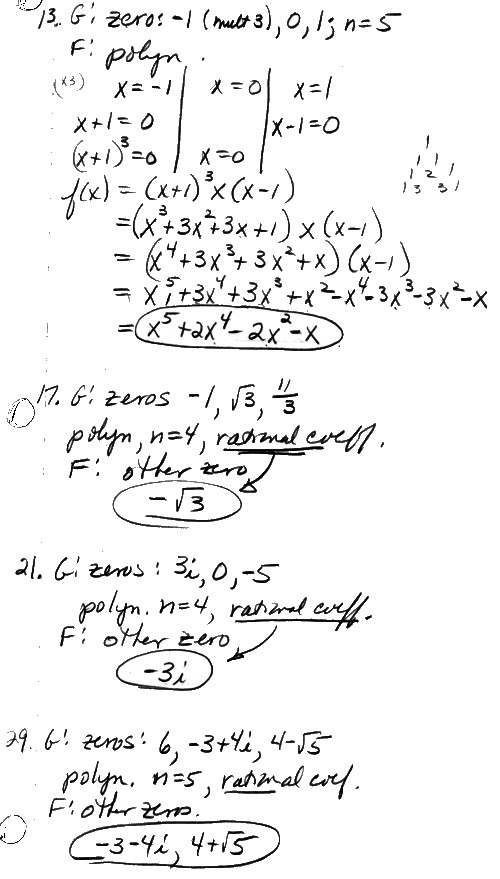 13. G: zeros: -1 (mult 3), 0, 1; n=5
F: polyn.
(x3) x = -1 | x = 0 | x = 1
x+1 = 0 | | x-1=0
(x+1)³=0 | x=0 |
f(x) = (x+1)³x(x-1)
=(x³+3x²+3x+1) x (x-1)
= (x⁴+3x³+3x²+x)(x-1)
= x⁵+3x⁴+3x³+x²-x⁴-3x³-3x²-x
= x⁵+2x⁴-2x²-x
1
1 1
1 2 1
1 3 3 1
17. G: zeros -1, √3, 11/3
polyn, n=4, rational coeff.
F: other zero
-√3
21. G: zeros: 3i, 0, -5
polyn. n=4, rational coeff.
F: other zero
-3i
29. G: zeros: 6, -3+4i, 4-√5
polyn. n=5, rational coef.
F: other zeros.
-3-4i, 4+√5